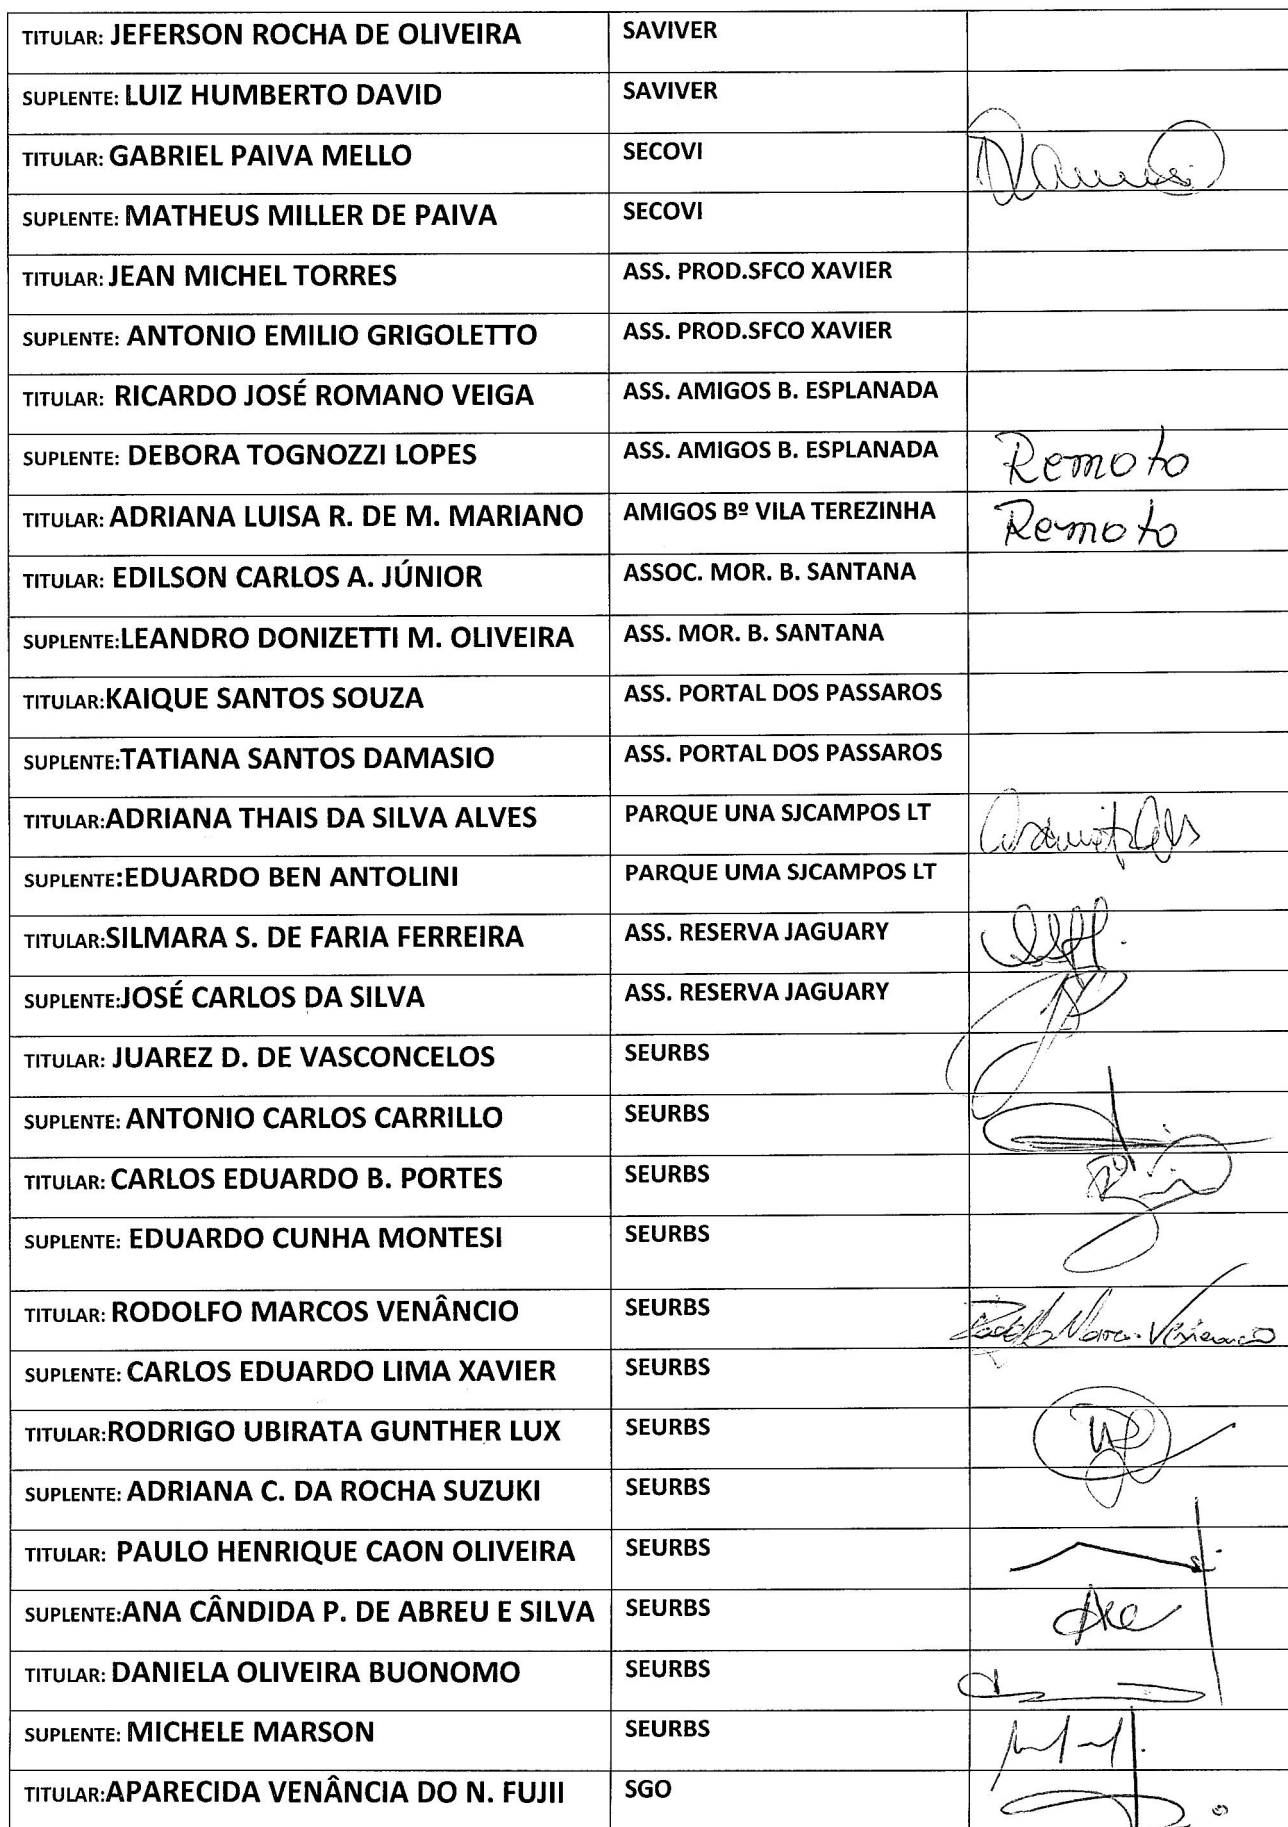 TITULAR: JEFERSON ROCHA DE OLIVEIRA SAVIVER
SUPLENTE: LUIZ HUMBERTO DAVID SAVIVER
TITULAR: GABRIEL PAIVA MELLO SECOVI
SUPLENTE: MATHEUS MILLER DE PAIVA SECOVI
TITULAR: JEAN MICHEL TORRES ASS. PROD.SFCO XAVIER
SUPLENTE: ANTONIO EMILIO GRIGOLETTO ASS. PROD.SFCO XAVIER
TITULAR: RICARDO JOSÉ ROMANO VEIGA ASS. AMIGOS B. ESPLANADA
SUPLENTE: DEBORA TOGNOZZI LOPES ASS. AMIGOS B. ESPLANADA Remoto
TITULAR: ADRIANA LUISA R. DE M. MARIANO AMIGOS Bº VILA TEREZINHA Remoto
TITULAR: EDILSON CARLOS A. JÚNIOR ASSOC. MOR. B. SANTANA
SUPLENTE:LEANDRO DONIZETTI M. OLIVEIRA ASS. MOR. B. SANTANA
TITULAR:KAIQUE SANTOS SOUZA ASS. PORTAL DOS PASSAROS
SUPLENTE:TATIANA SANTOS DAMASIO ASS. PORTAL DOS PASSAROS
TITULAR:ADRIANA THAIS DA SILVA ALVES PARQUE UNA SJCAMPOS LT
SUPLENTE:EDUARDO BEN ANTOLINI PARQUE UMA SJCAMPOS LT
TITULAR:SILMARA S. DE FARIA FERREIRA ASS. RESERVA JAGUARY
SUPLENTE:JOSÉ CARLOS DA SILVA ASS. RESERVA JAGUARY
TITULAR: JUAREZ D. DE VASCONCELOS SEURBS
SUPLENTE: ANTONIO CARLOS CARRILLO SEURBS
TITULAR: CARLOS EDUARDO B. PORTES SEURBS
SUPLENTE: EDUARDO CUNHA MONTESI SEURBS
TITULAR: RODOLFO MARCOS VENÂNCIO SEURBS
SUPLENTE: CARLOS EDUARDO LIMA XAVIER SEURBS
TITULAR:RODRIGO UBIRATA GUNTHER LUX SEURBS
SUPLENTE: ADRIANA C. DA ROCHA SUZUKI SEURBS
TITULAR: PAULO HENRIQUE CAON OLIVEIRA SEURBS
SUPLENTE:ANA CÂNDIDA P. DE ABREU E SILVA SEURBS
TITULAR: DANIELA OLIVEIRA BUONOMO SEURBS
SUPLENTE: MICHELE MARSON SEURBS
TITULAR:APARECIDA VENÂNCIA DO N. FUJII SGO